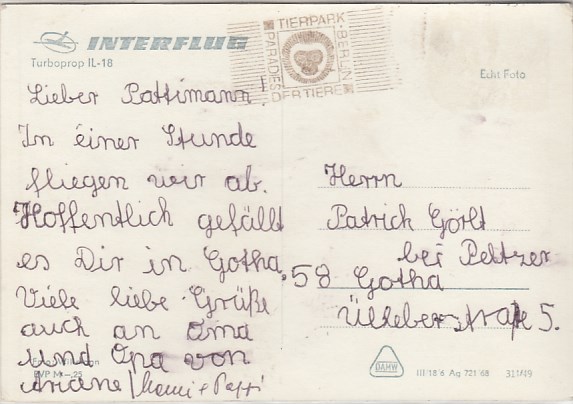 INTERFLUG
Turboprop IL-18
TIERPARK BERLIN
PARADIES DER TIERE
Echt Foto
Lieber Pattimann!
In einer Stunde
fliegen wir ab.
Hoffentlich gefällt
es Dir in Gotha.
Viele liebe Grüße
auch an Oma
und Opa von
Ariane / Mami + Pappi
EVP M -,25
Herrn
Patrick Görlt
bei Peltzer
58 Gotha
5.
DAHW
III/18/6 Ag 721/68